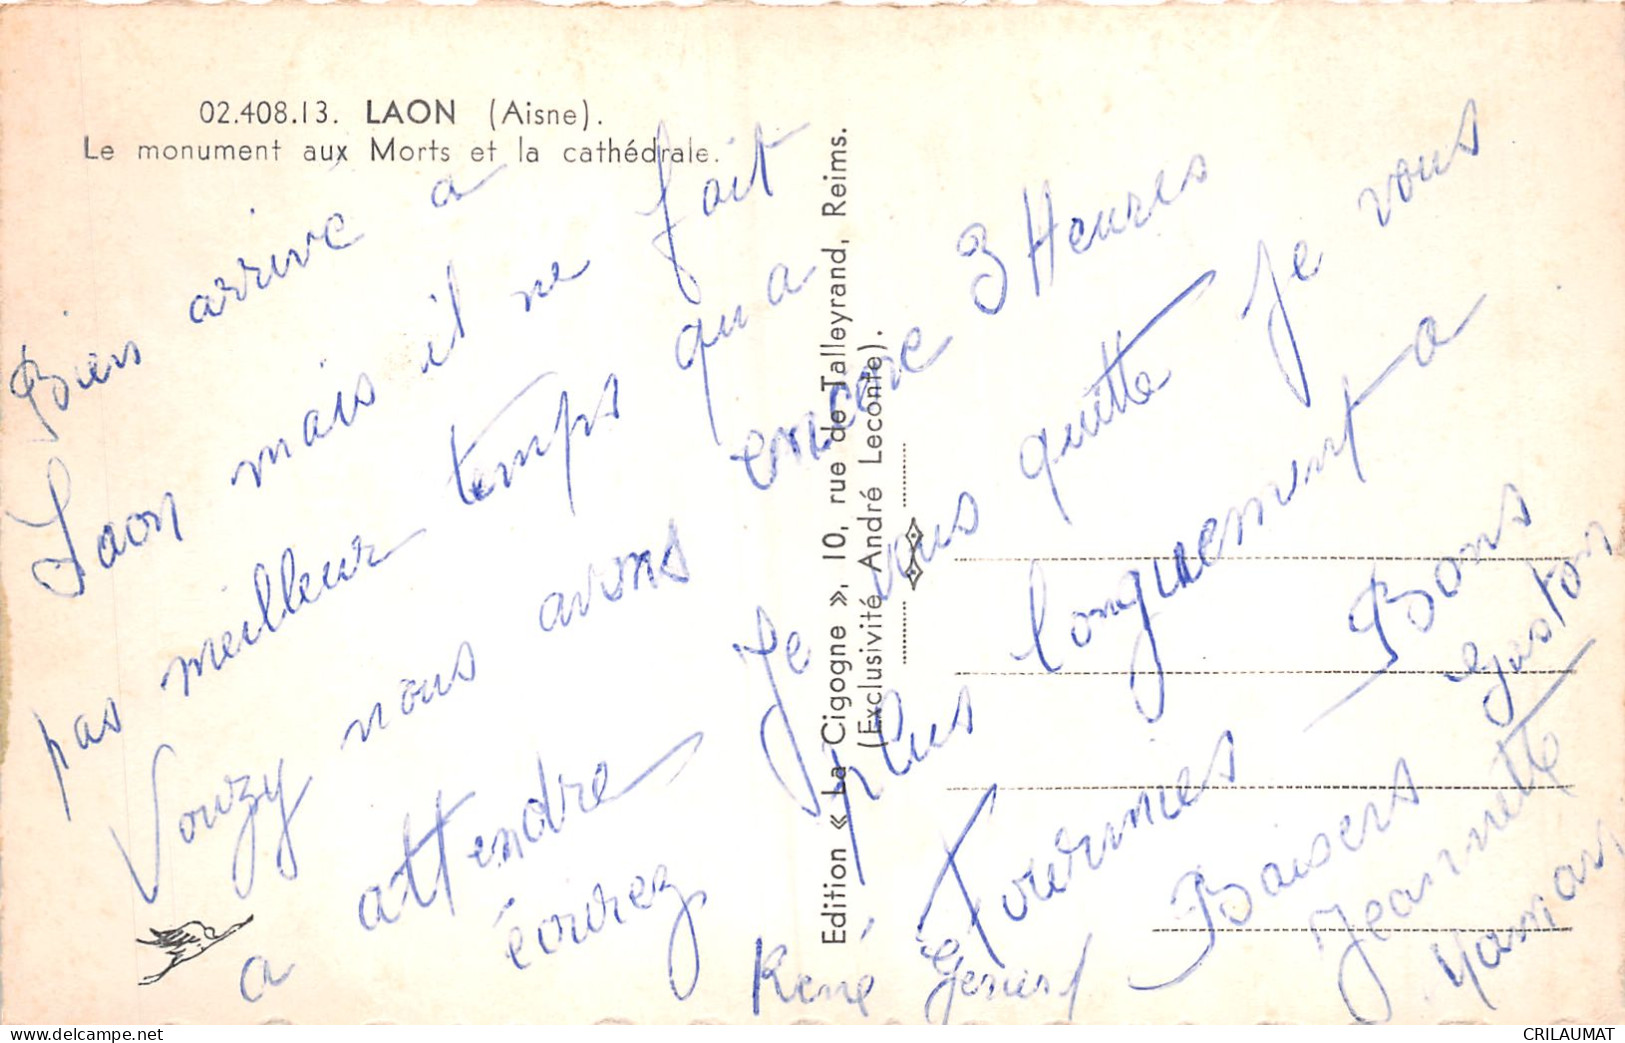 02.408.13. LAON (Aisne).
Le monument aux Morts et la cathédrale.
Bien arrivé a
Laon mais il ne fait
pas meilleur temps qu a
Vouzy nous avons encore 3 Heures
a attendre Je vous quitte Je vous
écrirez plus longuement a
Tournes Bons
Baisers
René Gérard
Gaston
Jeannette
Maman
Edition « La Cigogne », 10, rue de Talleyrand, Reims.
(Exclusivité André Leconte).
CRILAUMAT